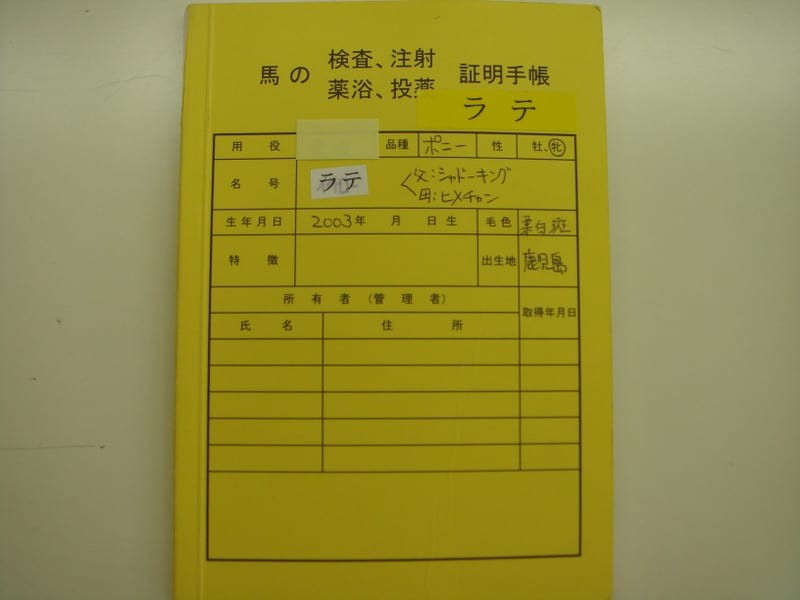 馬の 検査、注射 証明手帳
薬浴、投薬
ラテ
用役 品種 ポニー 性 牡、牝
名号 ラテ 父:シャドーキング
母:ヒメチャン
生年月日 2003年 月 日生 毛色
特徴 出生地 鹿児島
所有者(管理者) 取得年月日
氏名 住所